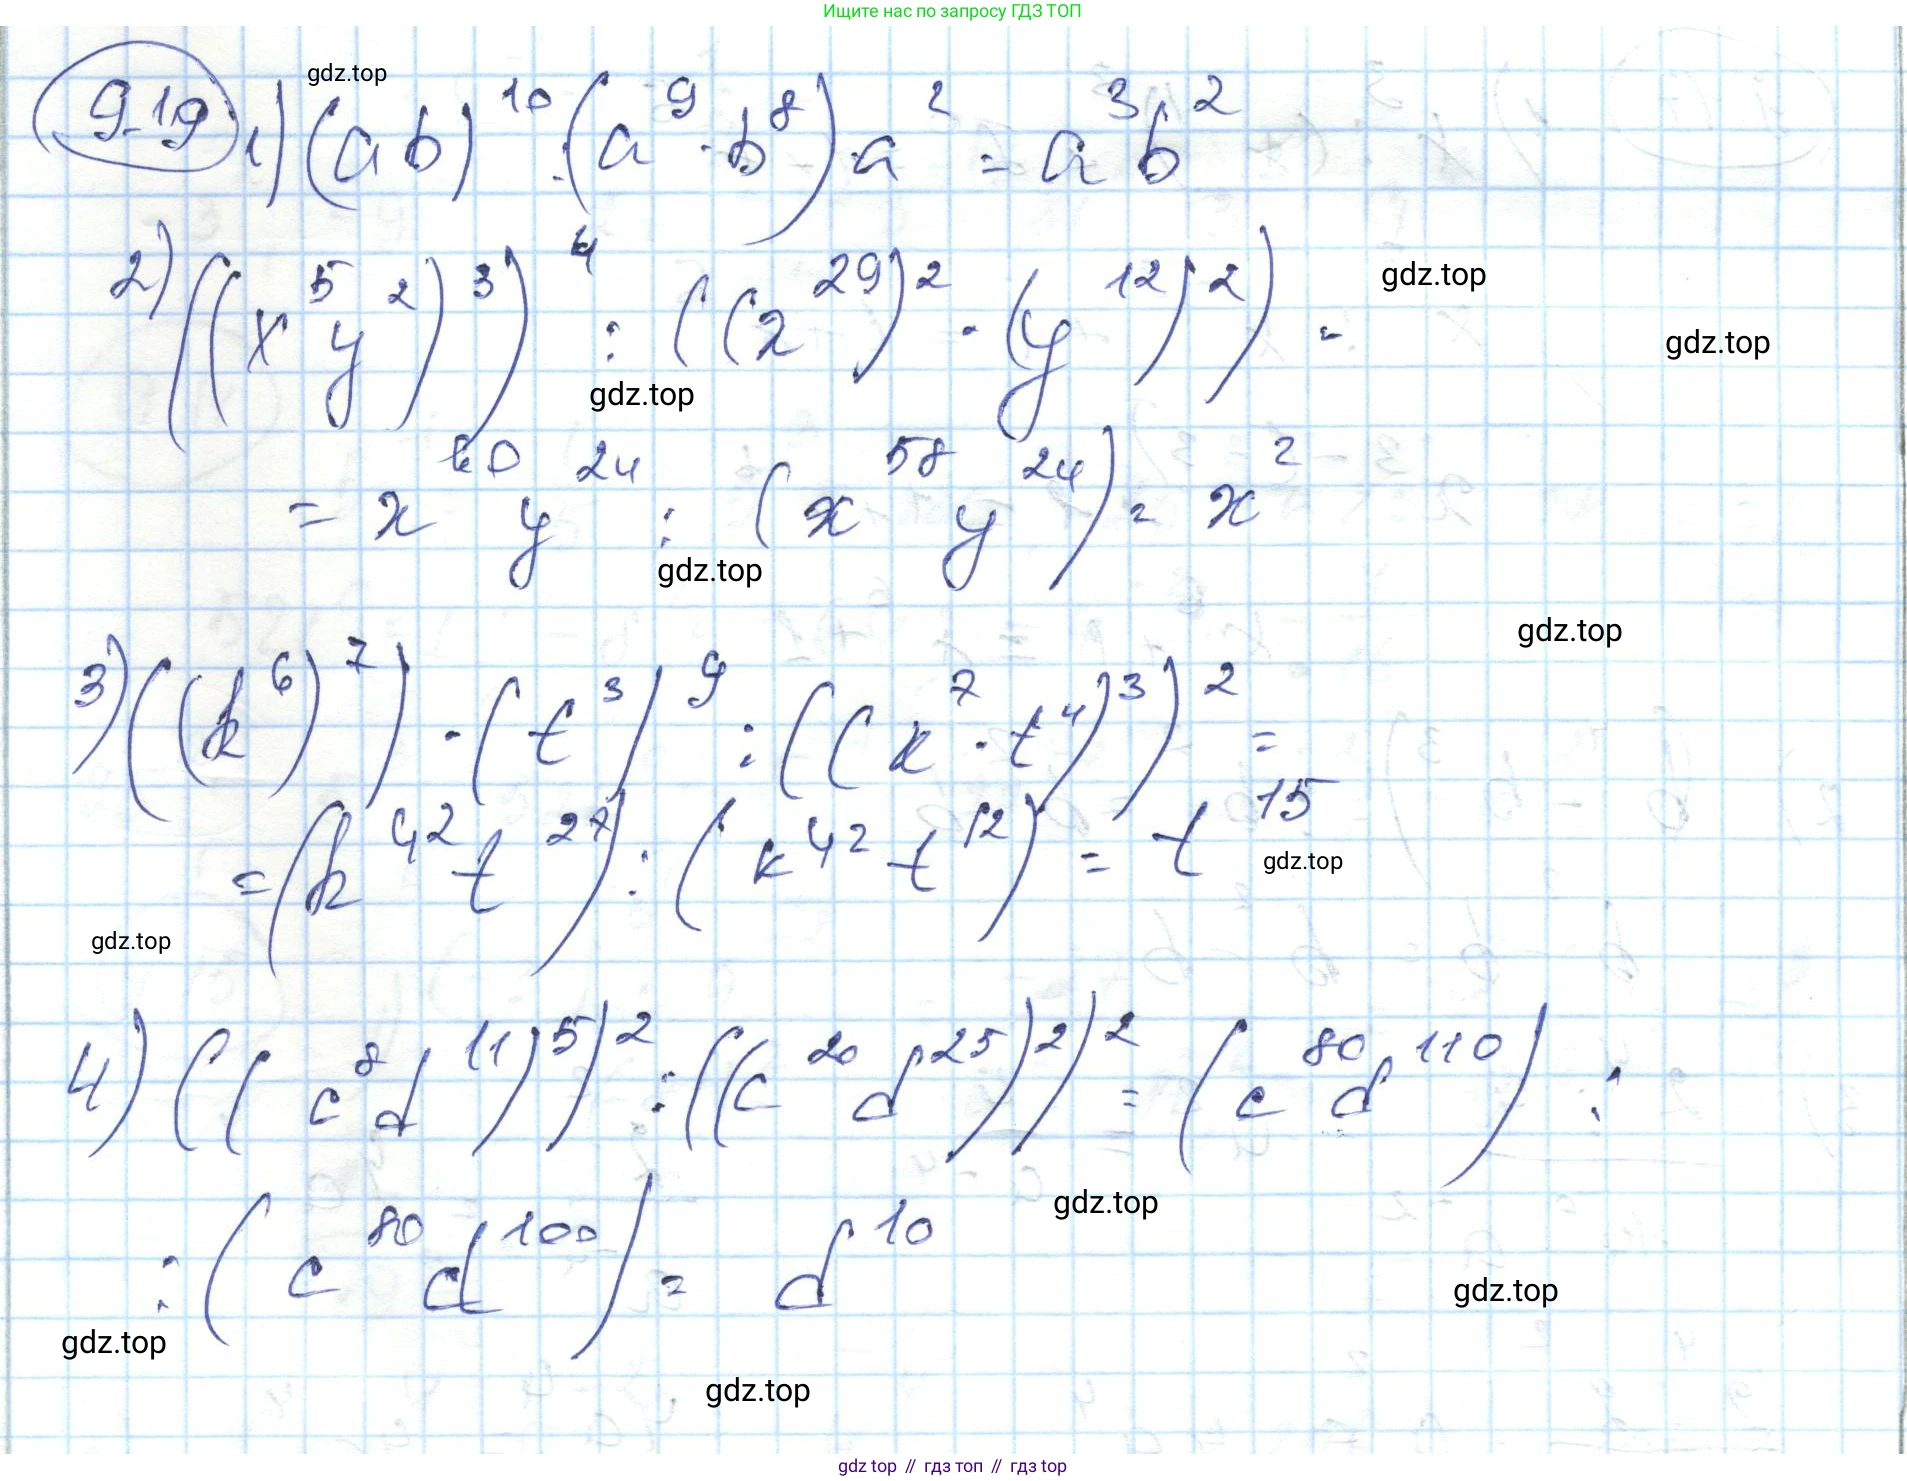 Ищите нас по запросу ГДЗ ТОП
gdz.top
9.19 1) (ab)^10 : (a^9 · b^8) · a^2 = a^3 b^2
2) ((x^5 y^2)^3)^4 : ((x^29)^2 · (y^12)^2) =
gdz.top
gdz.top
gdz.top
= x^60 y^24 : (x^58 y^24) = x^2
gdz.top
gdz.top
3) ((k^6)^7) · (t^3)^9 : ((k^7 · t^4)^3)^2 =
= (k^42 t^27) : (k^42 t^12) = t^15
gdz.top
gdz.top
4) ((c^8 d^11)^5)^2 : ((c^20 d^25)^2)^2 = (c^80 d^110) :
gdz.top
: (c^80 d^100) = d^10
gdz.top
gdz.top
gdz.top
gdz top // гдз топ // гдз top